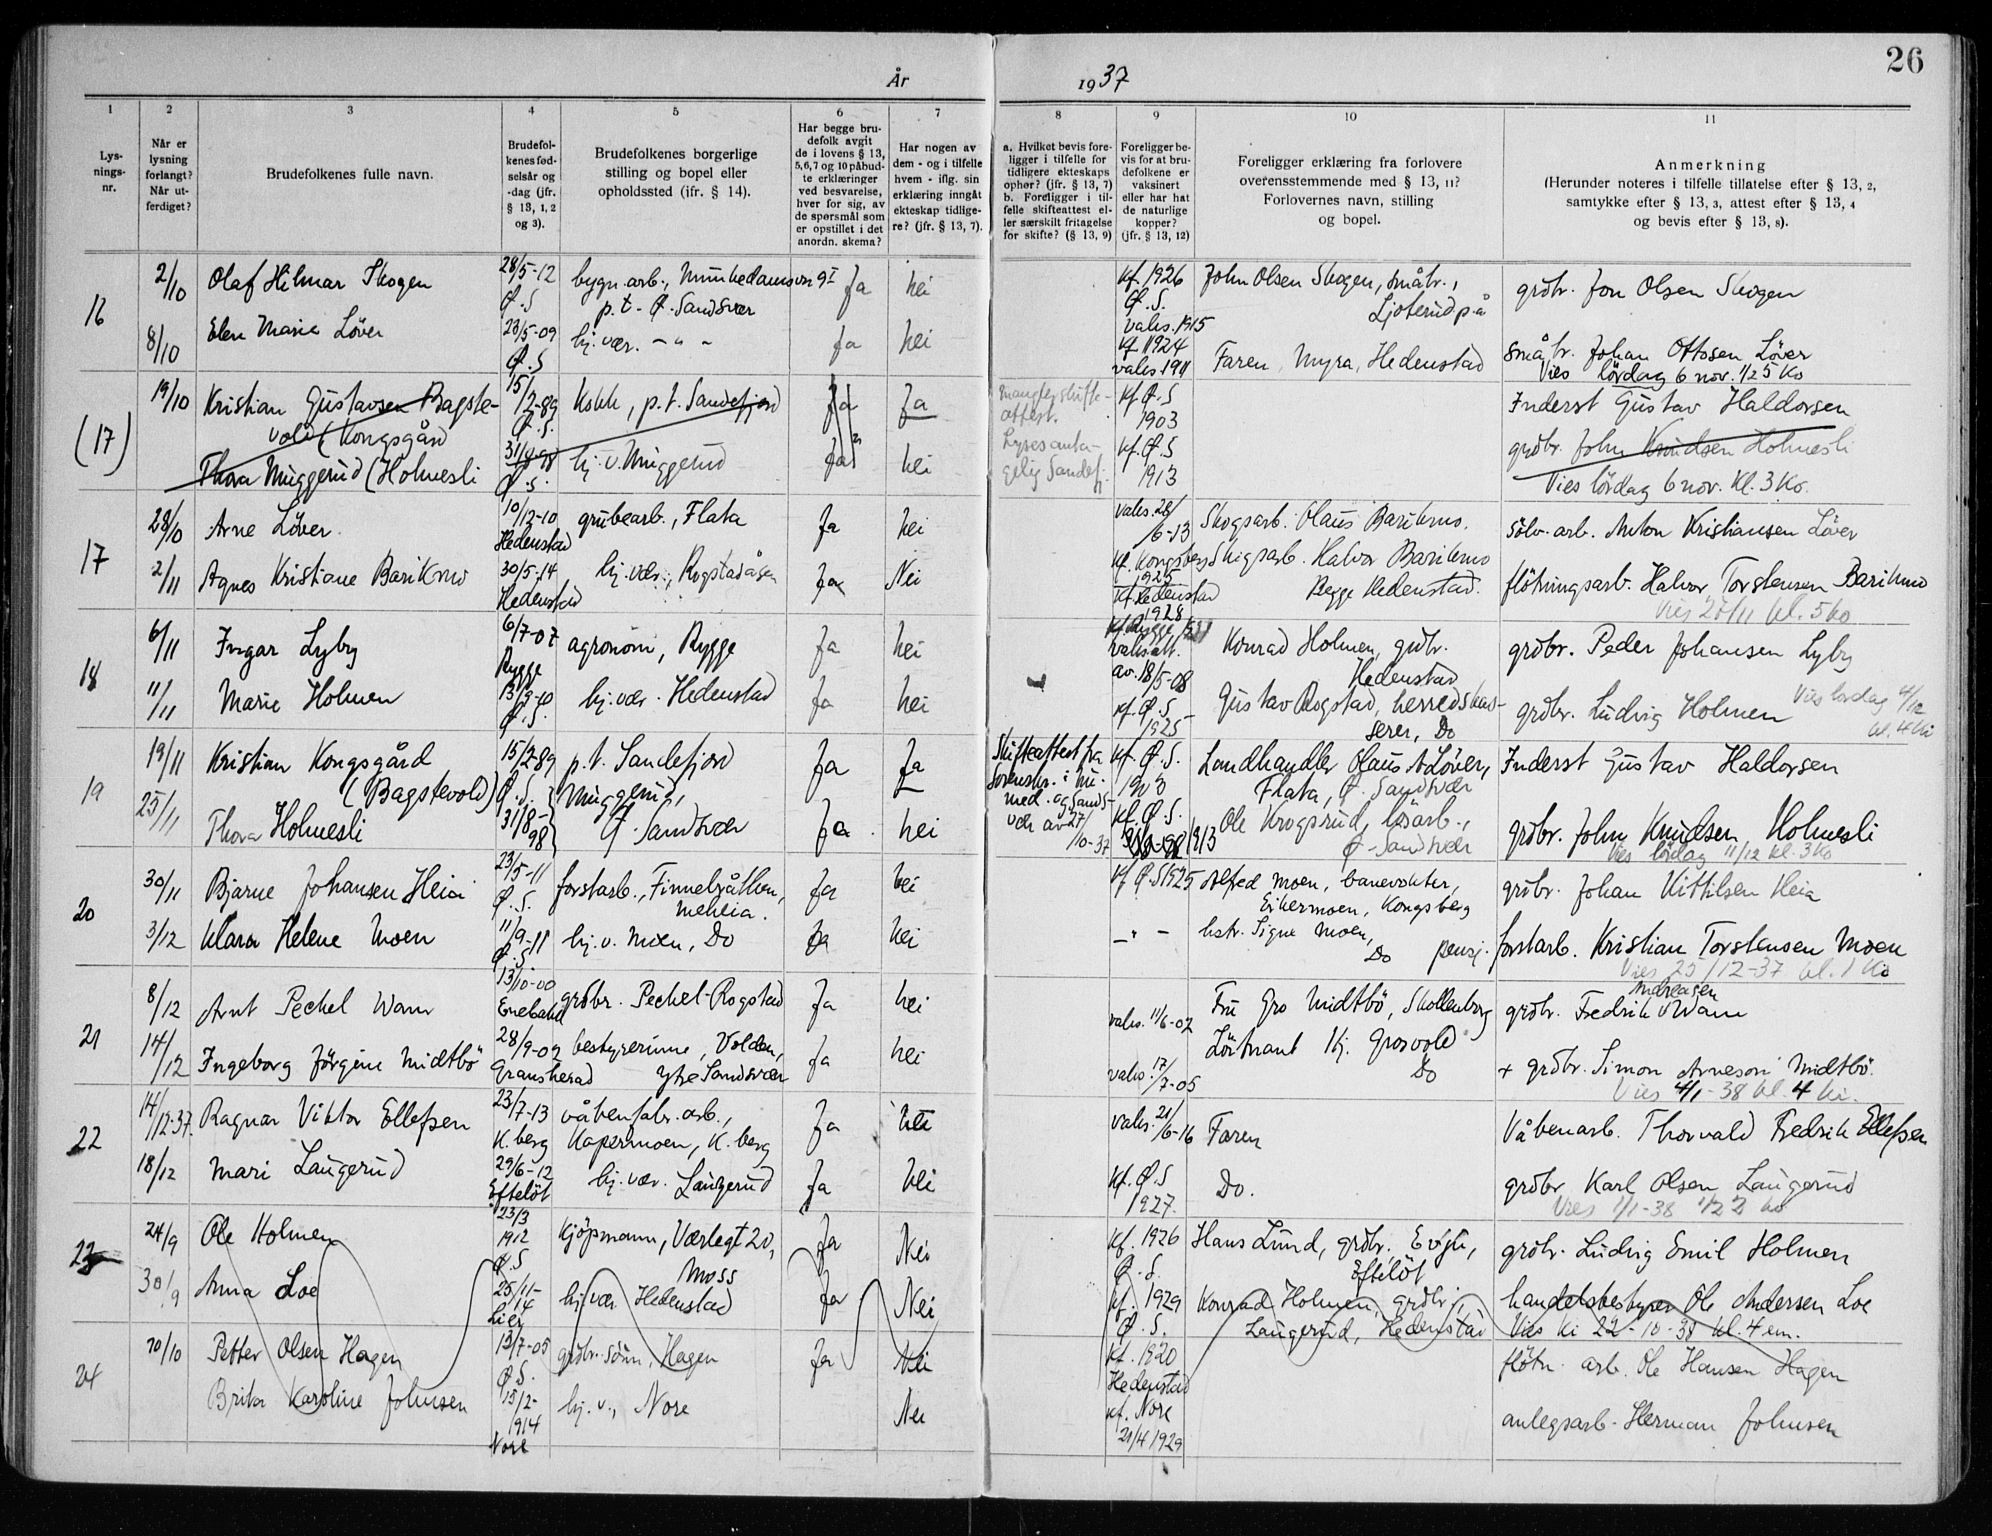 26
År 1937
1
Lys-
nings-
nr.
2
Når er
lysning
forlangt?
Når ut-
ferdiget?
3
Brudefolkenes fulle navn.
4
Brudefol-
kenes fød-
selsår og
-dag (jfr.
§ 13, 1, 2
og 3).
5
Brudefolkenes borgerlige
stilling og bopel eller
opholdssted (jfr. § 14).
6
Har begge bru-
defolk avgit
de i lovens § 13,
5,6,7 og 10 påbud-
te erklæringer
ved besvarelse,
hver for sig, av
de spørsmål som
er opstillet i det
anordn. skema?
7
Har nogen av
dem - og i tilfelle
hvem - iflg. sin
erklæring inngåt
ekteskap tidlige-
re? (jfr. § 13, 7).
8
a. Hvilket bevis fore-
ligger i tilfelle for
tidligere ekteskaps
ophør? (jfr. § 13, 7)
b. Foreligger i til-
felle skifteattest el-
ler særskilt fritagelse
for skifte? (§ 13, 9)
9
Foreligger be-
vis for at bru-
defolkene er
vaksinert
eller har hat
de naturlige
kopper?
(jfr. § 13, 12)
10
Foreligger erklæring fra forlovere
overensstemmende med § 13, 11?
Forlovernes navn, stilling
og bopel.
11
Anmerkning
(Herunder noteres i tilfelle tillatelse efter § 13, 2,
samtykke efter § 13, 3, attest efter § 13, 4
og bevis efter § 13, 8).
16
2/10 Olaf Hilmar Skogen 28/5-12 Ø.S bygn.arb., Munkedamsvn 9I
p.t. Ø. Sandsvær
Ja nei kf. 1926 Ø.S. vaks. 1915 John Olsen Skogen, småbr.,
Ljoterud p.å
grdbr. Jon Olsen Skogen
8/10 Elen Marie Löver 23/5-09 Ø.S hj. vær. - " - Ja nei kf 1924 vaks 1911 Faren, Myra, Hedenstad småbr. Johan Ottosen Löver
Vies lördag 6 nov. 1/2 5 Ko
(17)
19/10 Kristian Gustavsen Bagste-
vold (Kongsgård
15/2-89 Ø.S. Kokk, p.t. Sandefjord Ja Ja mangler skifte-
attest. kf Ø.S 1903 Inderst Gustav Haldorsen
Thora Muggerud (Holmesli 31/8-98 Ø.S. hj. v. Muggerud Ja nei Lyses anta-
gelig Sandef. kf. Ø.S 1913 grdbr. John Knudsen Holmesli
Vies lördag 6 nov. Kl. 3 Ko.
17
28/10 Arne Löver. 10/12-10 Hedenstad grubearb., Flata Ja nei vaks. 28/6-13 Skogsarb. Olaus Barikmo. Sölv. arb. Anton Kristiansen Löver
kf. Kongsberg 1925
2/11 Agnes Kristiane Barikmo 30/5-14 Hedenstad hj. vær., Rogstadåsen Ja Nei kf. Hedenstad 1928 Skogsarb. Halvor Barikmo
Begge Hedenstad.
flötningsarb. Halvor Torstensen Barikmo
Vies 27/11 kl. 5 Ko
18
6/11 Ingar Lyby 6/7-07 Rygge agronom, Rygge Ja nei kf. Rygge vaks att. av. 18/5-08 Konrad Holmen, grdbr.
Hedenstad
grdbr. Peder Johansen Lyby
11/11 Marie Holmen 13/9-10 Ø.S. hj. vær. Hedenstad Ja nei kf. Ø.S. 1925 Gustav Rogstad, herredskas-
serer, Do
grdbr. Ludvig Holmen Vies lördag 4/12
kl. 4 Ki
19
19/11 Kristian Kongsgård
(Bagstevold)
15/2-89 Ø.S. p.t. Sandefjord Ja Ja Skifteattest fra
sorenskr. i Nu-
med. og Sands-
vær av 27/
10-37
kf. Ø.S. 1903 Landhandler Olaus A Löver,
Flata, Ø. Sandsvær
Inderst Gustav Haldorsen
25/11 Thora Holmesli 31/8-98 Muggerud,
Ø. Sandsvær
Ja. nei kf. Ø.S. 1913 Ole Krogsrud, lösarb.,
Ø. Sandsvær
grdbr. John Knudsen Holmesli
Vies lördag 11/12 kl. 3 Ko
20
30/11 Bjarne Johansen Heia 23/5-11 Ø.S. forstarb., Finnebråthen,
Meheia.
Ja nei kf Ø.S 1925 Alfred Moen, banevokter,
Eikermoen, Kongsberg
grdbr. Johan Kittilsen Heia
3/12 Klara Helene Moen 11/9-11 Ø.S hj. v. Moen, Do Ja nei - " - hstr. Signe Moen,
Do
pensj. forstarb. Kristian Torstensen Moen
Vies 25/12-37 kl. 1 Ko
21
8/12 Arnt Peckel Wam 13/10-00 Enebakk grdbr. Peckel-Rogstad Ja nei vaks. 11/6-02 Fru Gro Midtbö, Skollenborg Andreasen
grdbr. Fredrik Wam
14/12 Ingeborg Jörgine Midtbö 28/9-02 Gransherad bestyrerinne, Volden,
Ytre Sandsvær
Ja nei vaks. 17/7-05 Löitnant Kj. Grosvold
Do
+ grdbr. Simon Arneson Midtbö.
Vies 4/1-38 kl. 4 Ki.
22
14/12-37. Ragnar Viktor Ellefsen 23/7-13 K.berg våbenfabr.arb.,
Kapermoen, K.berg
Ja nei vaks. 21/6-16 Faren Våbenarb. Thorvald Fredrik Ellefsen
18/12 Mari Laugerud 29/6-12 Efteløt hj. vær. Laugerud Ja Nei kf. Ø.S 1927. Do. grdbr Karl Olsen Laugerud
Vies 1/1-38 1/2 2 ko
23
24/9 Ole Holmen 23/3 1912 Ø.S Kjöpmann, Værlegt 20,
Moss
Ja Nei kf. 1926 Ø.S. Hans Lund, grdbr., Evju,
Eftelöt
grdbr. Ludvig Emil Holmen
30/9 Anna Loe 25/11-14 Lier hj. vær Hedenstad Ja Nei kf. 1929 Ø.S. Konrad Holmen, grdbr.,
Laugerud, Hedenstad
handelsbestyrer Ole Andersen Loe
Vies Ki 22-10-38 kl. 4 em.
24
20/10 Petter Olsen Hagen 13/7-05 Ø.S. grdbr. sönn, Hagen Ja Nei kf. 1920 Hedenstad flötn. arb. Ole Hansen Hagen
Brita Karoline Johnsen 15/2-914 Nore hj. v., Nore Nei kf. Nore 21/4 1929 anlegsarb. Herman Johnsen